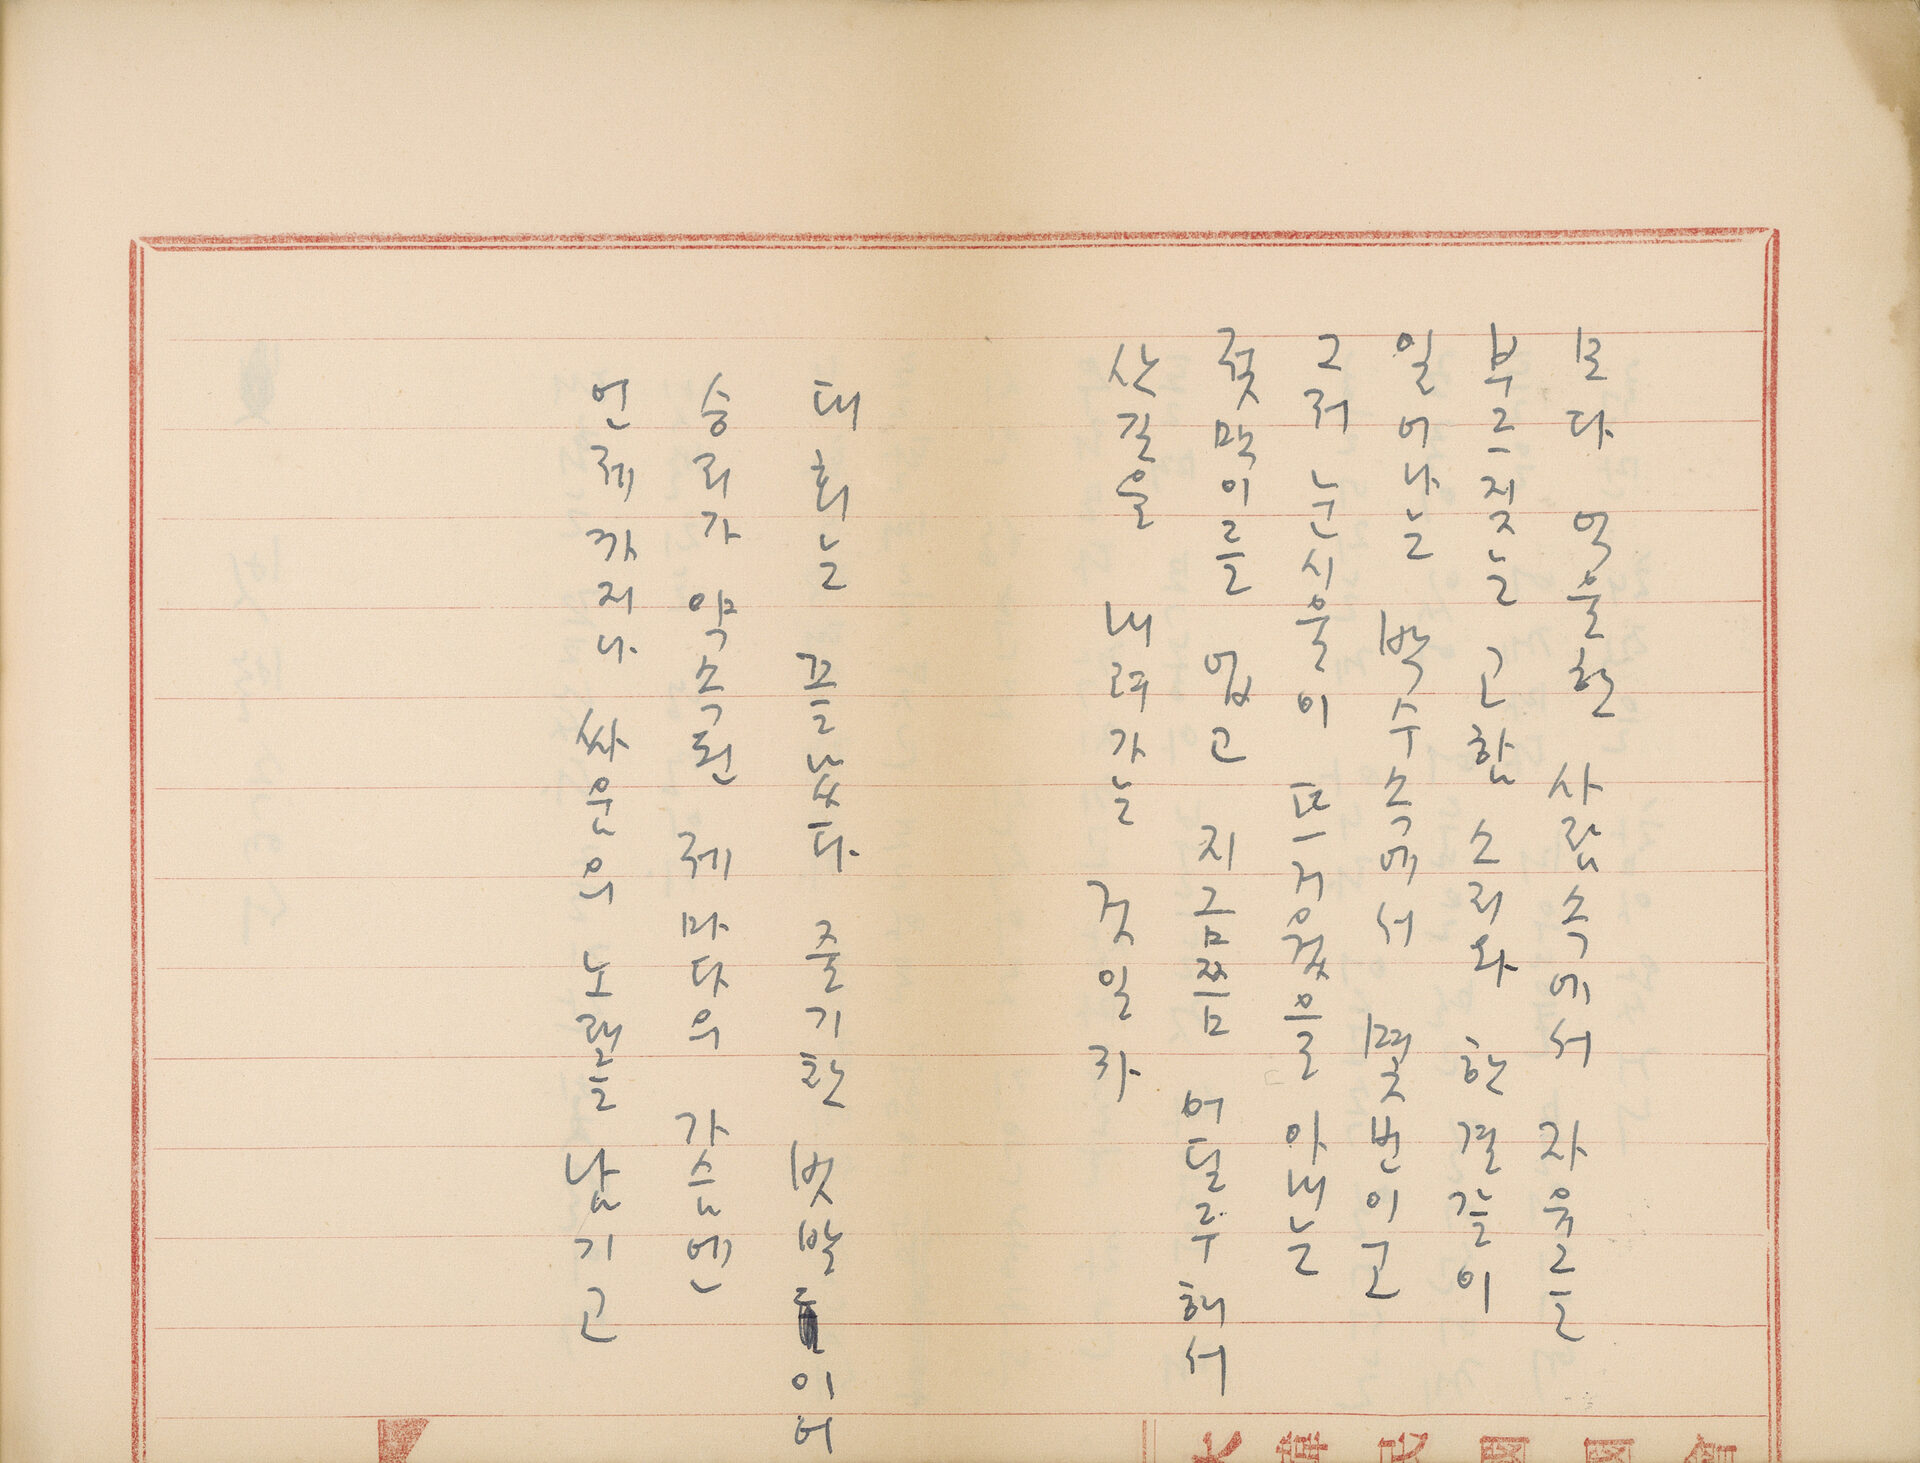 보다 억울한 사람속에서 자유를
부르짖는 고함 소리와 한결같이
일어나는 박수속에서 몇번이고
그저 눈시울이 뜨거웠을 아내는
젖먹이를 업고 지금쯤 어델루해서
산길을 내려가는 것일까
대회는 끝났다 줄기찬 빗발이어
승리가 약속된 제마다의 가슴엔
언제까지나 싸움의 노래를 남기고